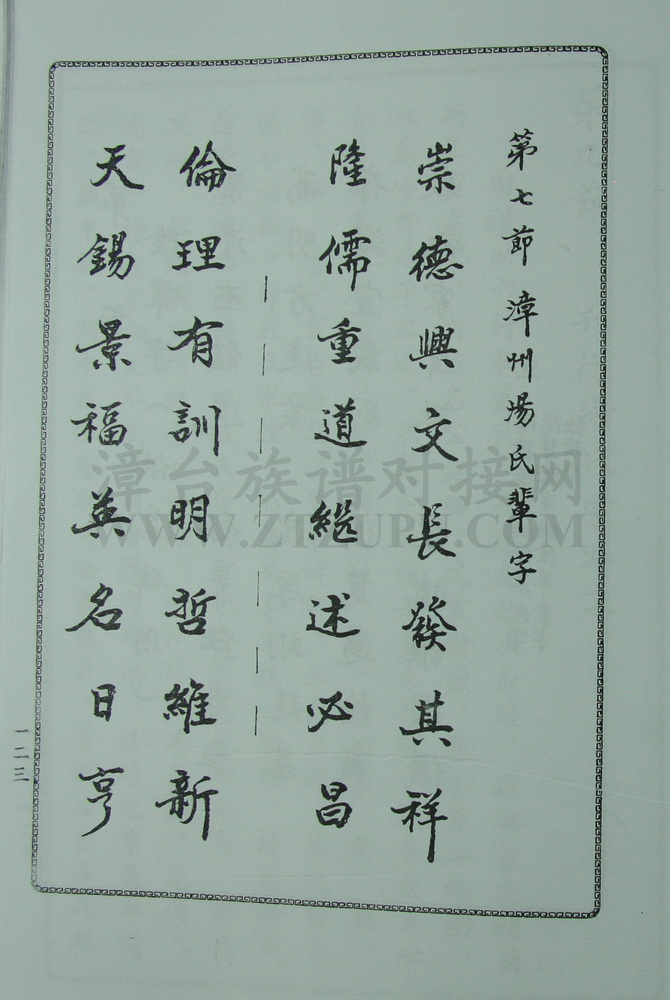 第七節 漳州楊氏輩字
崇德興文長發其祥
隆儒重道繼述必昌
倫理有訓明哲維新
天錫景福英名日亨
一二三
漳台族谱对接网
WWW.ZTZUPU.COM